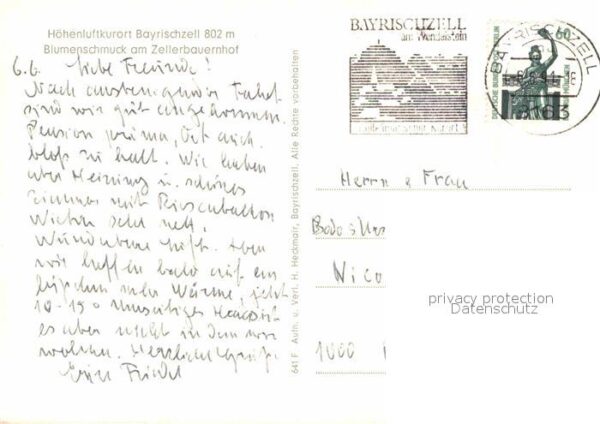 Höhenluftkurort Bayrischzell 802 m
Blumenschmuck am Zellerbauernhof
6.6. Liebe Freunde!
Nach Fahrt
sind wir gut angekommen.
Pension prima, Ort auch.
bloß zu kalt. Wir haben
aber Heizung u. schönes
Zimmer mit Riesenbalkon
Wirtin sehr nett.
Wunderbare Luft. Aber
wir hoffen bald auf ein
bißchen mehr Wärme, jetzt
10-15°
es aber nicht in dem wir
wohnen. Herzliche Grüße
641 F Aufn. u. Verl. H. Heckmair, Bayrischzell. Alle Rechte vorbehalten
BAYRISCHZELL
am Wendelstein
BAYRISCHZELL
8163
60
DEUTSCHE BUNDESPOST BERLIN
MÜNCHEN
Herrn & Frau
Nico
1000
privacy protection
Datenschutz